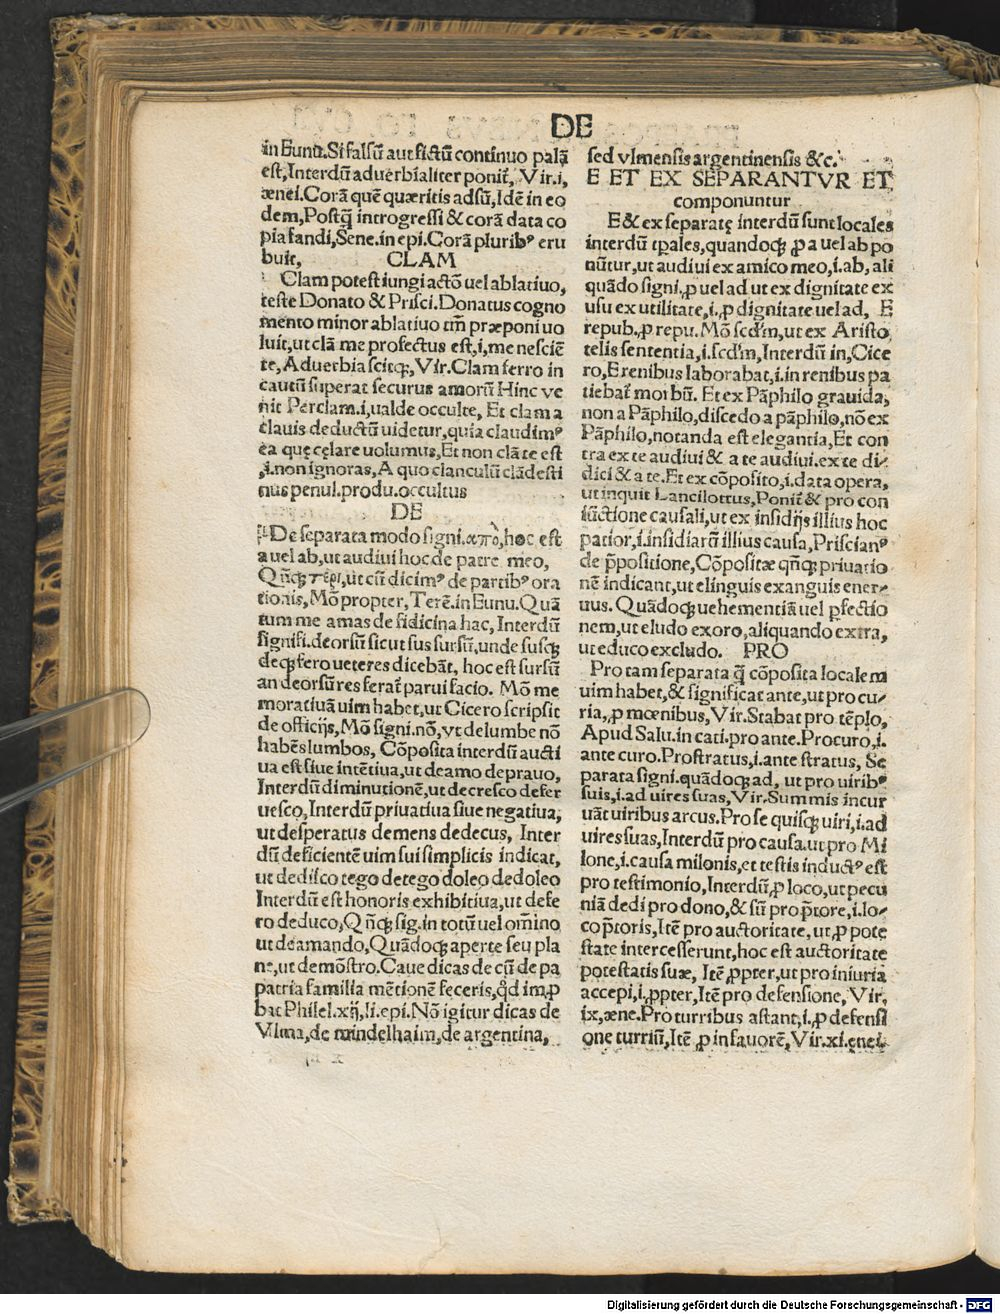 DE
in Eunū. Si falsū aut fictū continuo palā
est, Interdū aduerbialiter ponit᷑, Vir. i,
ænei. Corā quē quæritis adsū, Idē in eo
dem, Postq̄ introgressi & corā data co
pia fandi, Sene. in epi. Corā pluribꝰ eru
buit, CLAM
Clam potest iungi actō uel ablatiuo,
teste Donato & Prisci. Donatus cogno
mento minor ablatiuo tm̄ præponi uo
luit, ut clā me profectus est, i, me nesciē
te, Aduerbiascitqȝ, Vir. Clam ferro in
cautū superat securus amorū Hinc ve
nit Perclam. i, ualde occulte, Et clam a
clauis deductū uidetur, quia claudimꝰ
ea quę cęlare uolumus, Et non clā te est
,i. non ignoras, A quo clanculū clādesti
nus penul. produ. occultus
DE
De separata modo signi. απὸ, hoc est
a uel ab, ut audiui hoc de patre meo,
Qn̄qȝ περι, ut cū dicimꝰ de partibꝰ ora
tionis, Mō propter, Terē. in Eunu. Quā
tum me amas de fidicina hac, Interdū
signifi. deorsū sicut sus sursū, unde susqȝ
deqȝ fero ueteres dicebāt, hoc est sursū
an deorsū res ferat᷑ parui facio. Mō me
moratiuā uim habet, ut Cicero scripsit
de officijs, Mō signi. nō, vt delumbe nō
habēs lumbos, Cōposita interdū aucti
ua est siue intētiua, ut deamo deprauo,
Interdū diminutionē, ut decresco defer
uesco, Interdū priuatiua siue negatiua,
ut desperatus demens dedecus, Inter
dū deficientē uim sui simplicis indicat,
ut dedisco tego detego doleo dedoleo
Interdū est honoris exhibitiua, ut defe
ro deduco, Qn̄qȝ sig. in totū uel om̄ino
ut deamando, Quādoqȝ aperte seu pla
ne, ut demōstro. Caue dicas de cū de pa
patria familia mētionē feceris, qd̄ im ꝓ
bat Philel. xij, li. epi. Nō igitur dicas de
Vlma, de mindelhaim, de argentina,
sed vlmensis argentinensis &c.
E ET EX SEPARANTVR ET
componuntur
E & ex separatę interdū sunt locales
interdū tꝑales, quandoqȝ ꝓ a uel ab po
nūtur, ut audiui ex amico meo, i. ab, ali
quādo signi. ꝓ uel ad ut ex dignitate ex
usu ex utilitate, i, ꝓ dignitate uel ad, E
repub., ꝓ repu. Mō scd'm, ut ex Aristo
telis sententia, i. scd'm, Interdū in, Cice
ro, E renibus laborabat, i. in renibus pa
tiebat᷑ morbū. Et ex Pāphilo grauida,
non a Pāphilo, discedo a pāphilo, nō ex
Pāphilo, notanda est elegantia, Et con
tra ex te audiui & a te audiui. ex te di⸗
dici & a te. Et ex cōposito, i. data opera,
ut inquit Lancilottus, Ponit᷑ & pro con
iūctione causali, ut ex insidijs illius hoc
patior, i. insidiarū illius causa, Priscianꝰ
de p̄positione, Cōpositæ qn̄qȝ priuatio
nē indicant, ut elinguis exanguis ener⸗
uus. Quādoqȝ uehementiā uel ꝑfectio
nem, ut eludo exoro, aliquando extra,
ut educo excludo. PRO
Pro tam separata q̄ cōposita localem
uim habet, & significat ante, ut pro cu⸗
ria, ꝓ mœnibus, Vir. Stabat pro tēplo,
Apud Salu. in cati. pro ante. Procuro, i.
ante curo. Prostratus, i. ante stratus, Se
parata signi. quādoqȝ ad, ut pro uiribꝰ
suis, i. ad uires suas, Vir. Summis incur
uāt uiribus arcus. Pro se quisqȝ uiri, i. ad
uires suas, Interdū pro causa. ut pro Mi
lone, i. causa milonis, et testis inductꝰ est
pro testimonio, Interdū, ꝓ loco, ut pecu
niā dedi pro dono, & sū pro p̄tore, i. lo⸗
co p̄toris, Itē pro auctoritate, ut, ꝓ pote
state intercesserunt, hoc est auctoritate
potestatis suæ, Itē ꝓpter, ut pro iniuria
accepi, i, ꝓpter, Itē pro defensione, Vir,
ix, æne. Pro turribus astant, i. ꝓ defensi
one turriū, Itē ꝓ in fauorē, Vir. xi. ęnei.
Digitalisierung gefördert durch die Deutsche Forschungsgemeinschaft - DFG